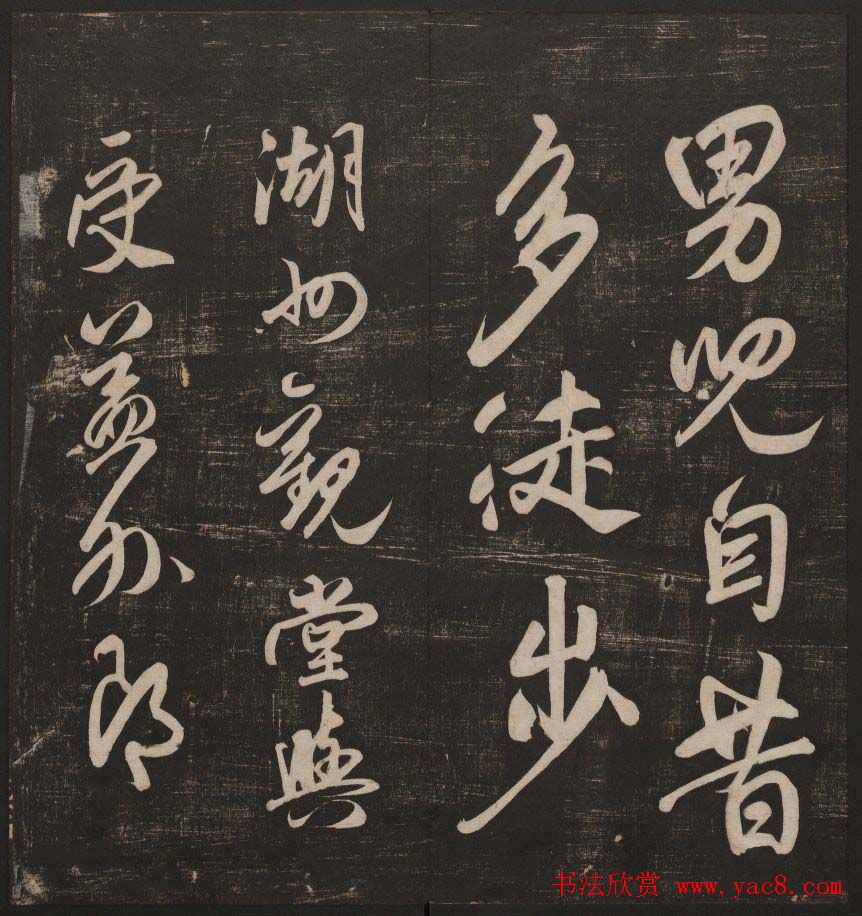 男兒自昔
多徒步
湖州觀堂與
受益外郎
书法欣赏 www.yac8.com